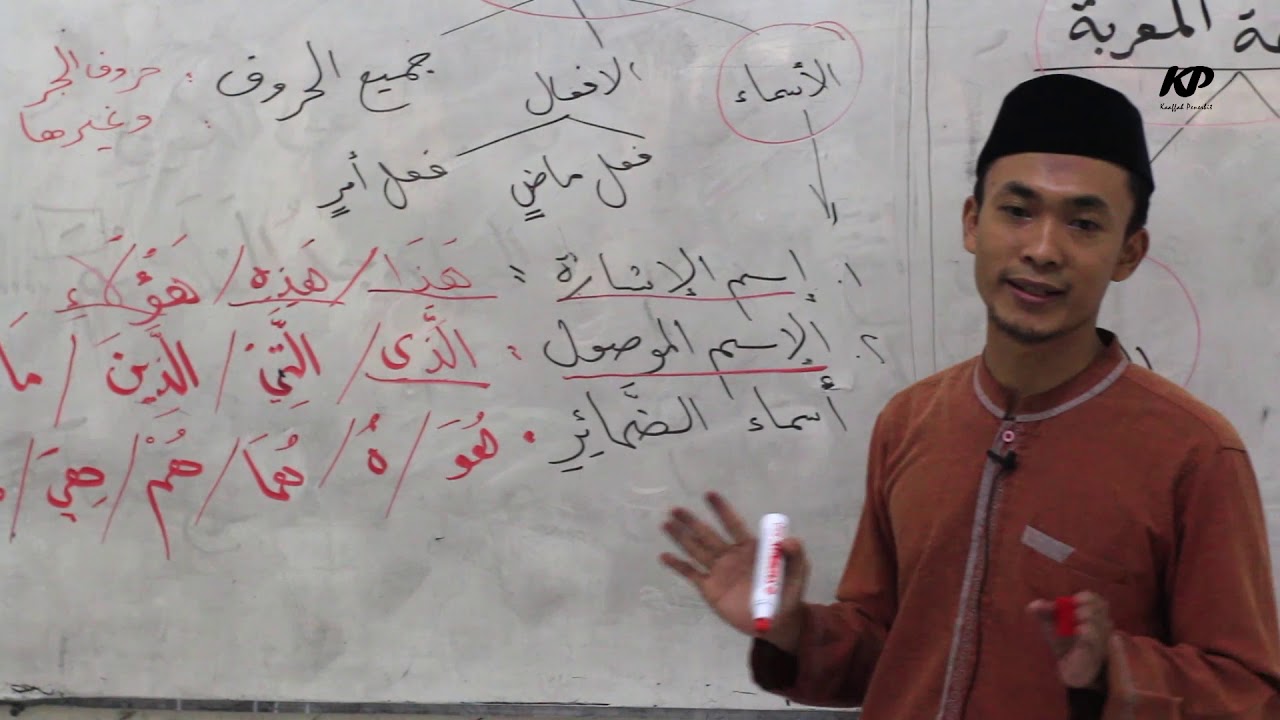 ـة المعربة
KP
Kaaffah Penerbit
الأسماء
الافعال
جميع الحروف : حروف الجر
وغيرها
فعل ماضٍ
فعل أمرٍ
١. إسم الإشارة : هَذَا / هَذِهِ / هَؤُلَاءِ
٢. الإسم الموصول : الَّذِى / الَّتِيْ / الَّذِينَ / مَا
أسماء الضَّمائِرِ . هُوَ / هُ / هُمَا / هُمْ / هِيَ /